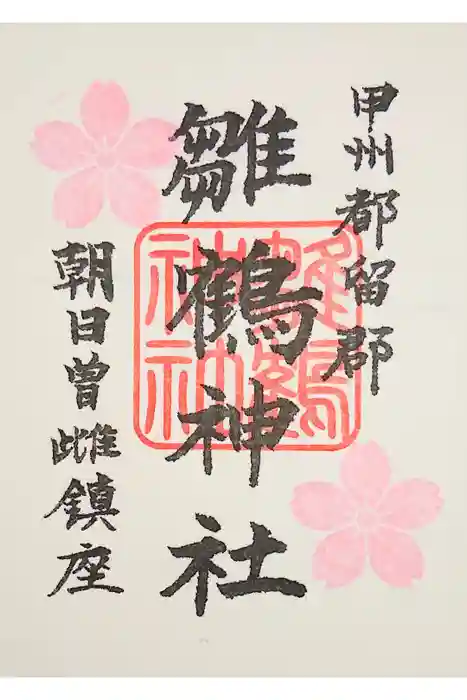 甲州都留郡
雛鶴神社
朝日曽雌鎮座
雛鶴
神社